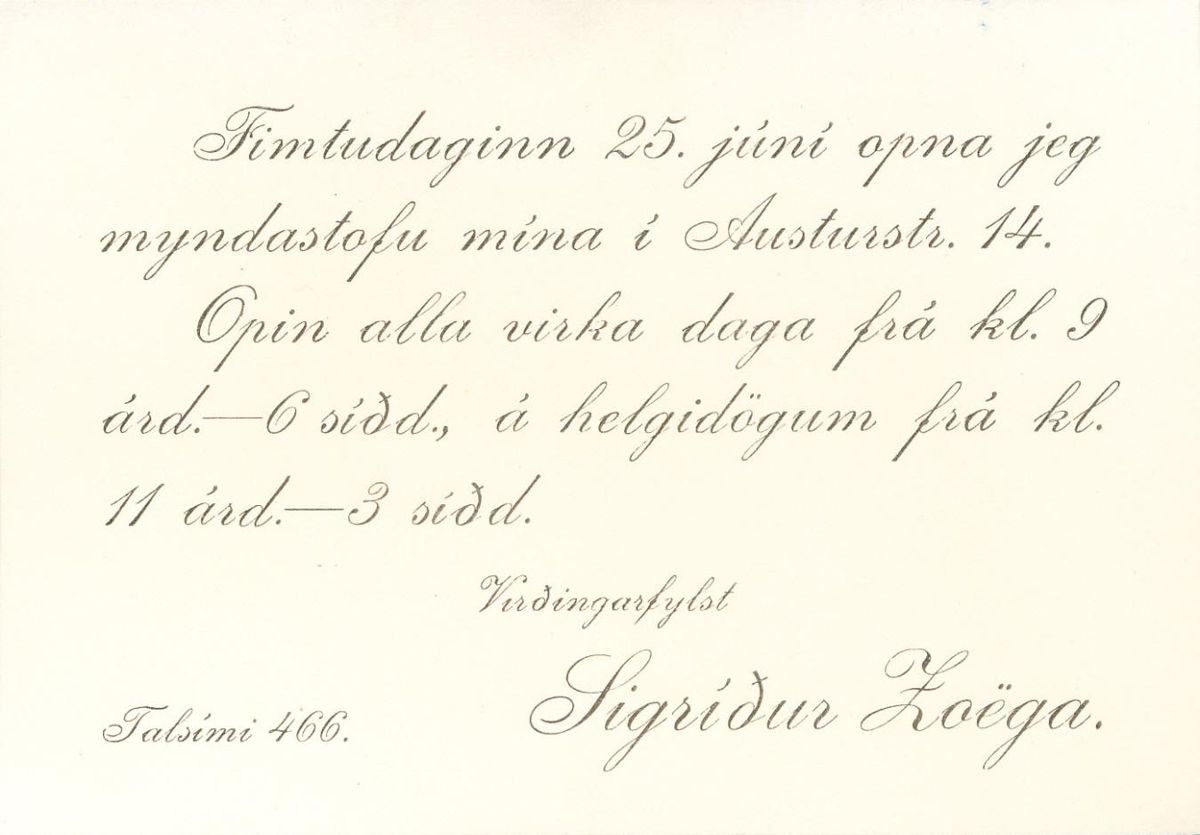 Fimtudaginn 25. júní opna jeg
myndastofu mína í Austurstr. 14.
Opin alla virka daga frá kl. 9
árd.—6 síðd., á helgidögum frá kl.
11 árd.—3 síðd.
Virðingarfylst
Sigríður Zoëga.
Talsími 466.